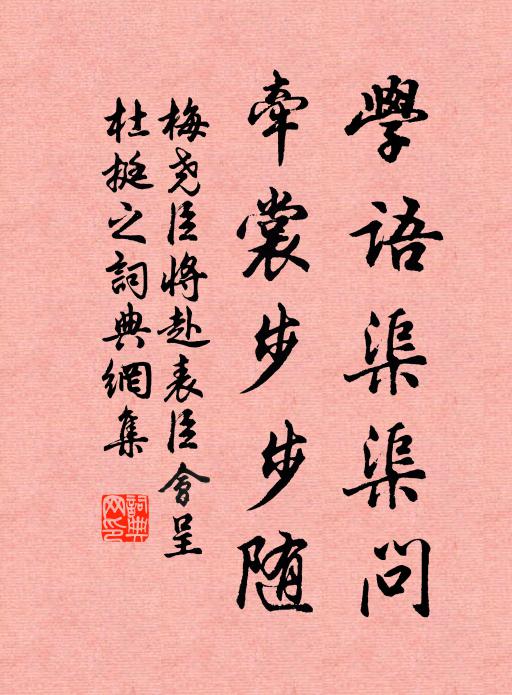 學語渠渠問
牽裳步步隨
梅尧臣將赴表臣會呈
杜挺之詞典網集
詞典网印